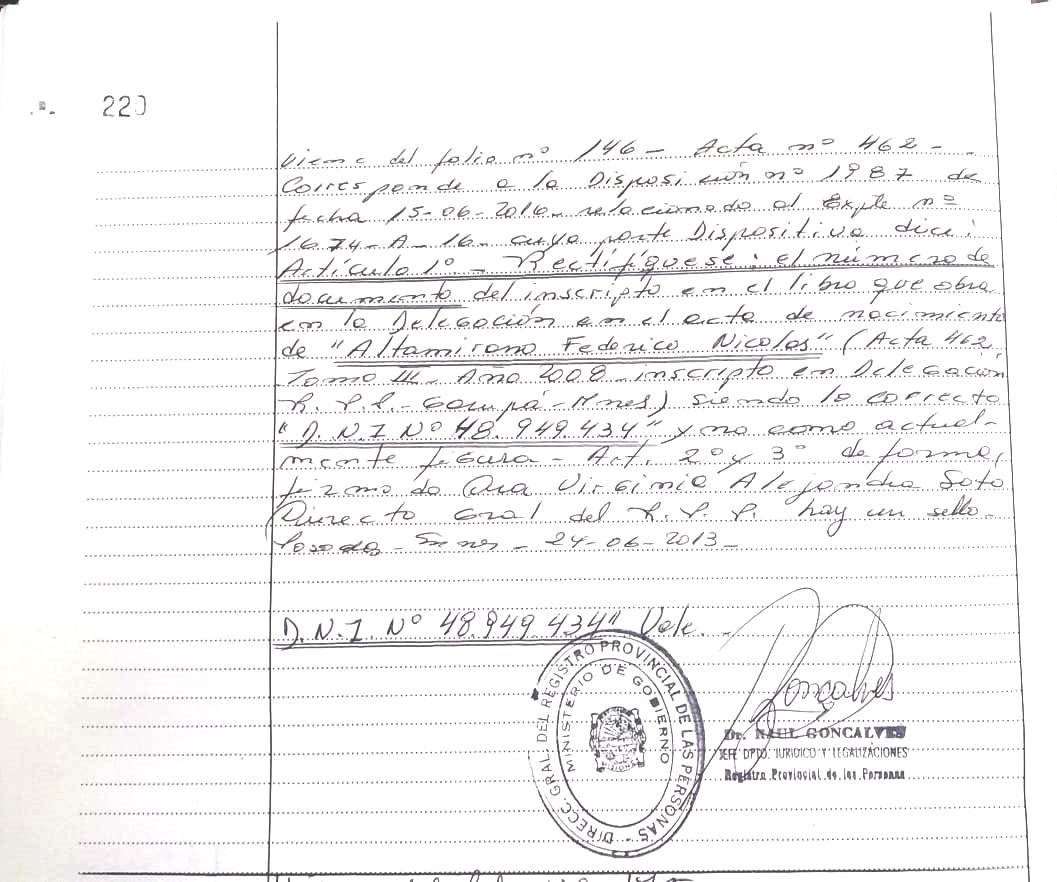 220
Viene del folio nº 146 - Acta nº 462 -
Corresponde a la Disposición nº 1987 de
fecha 15-06-2016 - relacionado al Expte nº
1674-A-16- cuya parte Dispositiva dice:
Artículo 1º - Rectifíquese: el número de
documento del inscripto en el libro que obra
en la Delegación en el acta de nacimiento
de "Altamirano Federico Nicolas" (Acta 462
Tomo III - Año 2008 - inscripto en Delegación
R.P.P. - Garupá - Mnes) siendo lo correcto
"D.N.I Nº 48.949.434" y no como actual-
mente figura - Art. 2º y 3º de forma,
firmado Dra Virginia Alejandra Soto
Directo Gral del R.P.P. hay un sello.
Posadas - - 24-06-2013 -
D.N.I. Nº 48.949.434" Vale. -
Goncalves
Dr. RAUL GONCALVES
JEFE DPTO. JURIDICO Y LEGALIZACIONES
Registro Provincial de las Personas
DIRECC. GRAL. DEL REGISTRO PROVINCIAL DE LAS PERSONAS -
MINISTERIO DE GOBIERNO